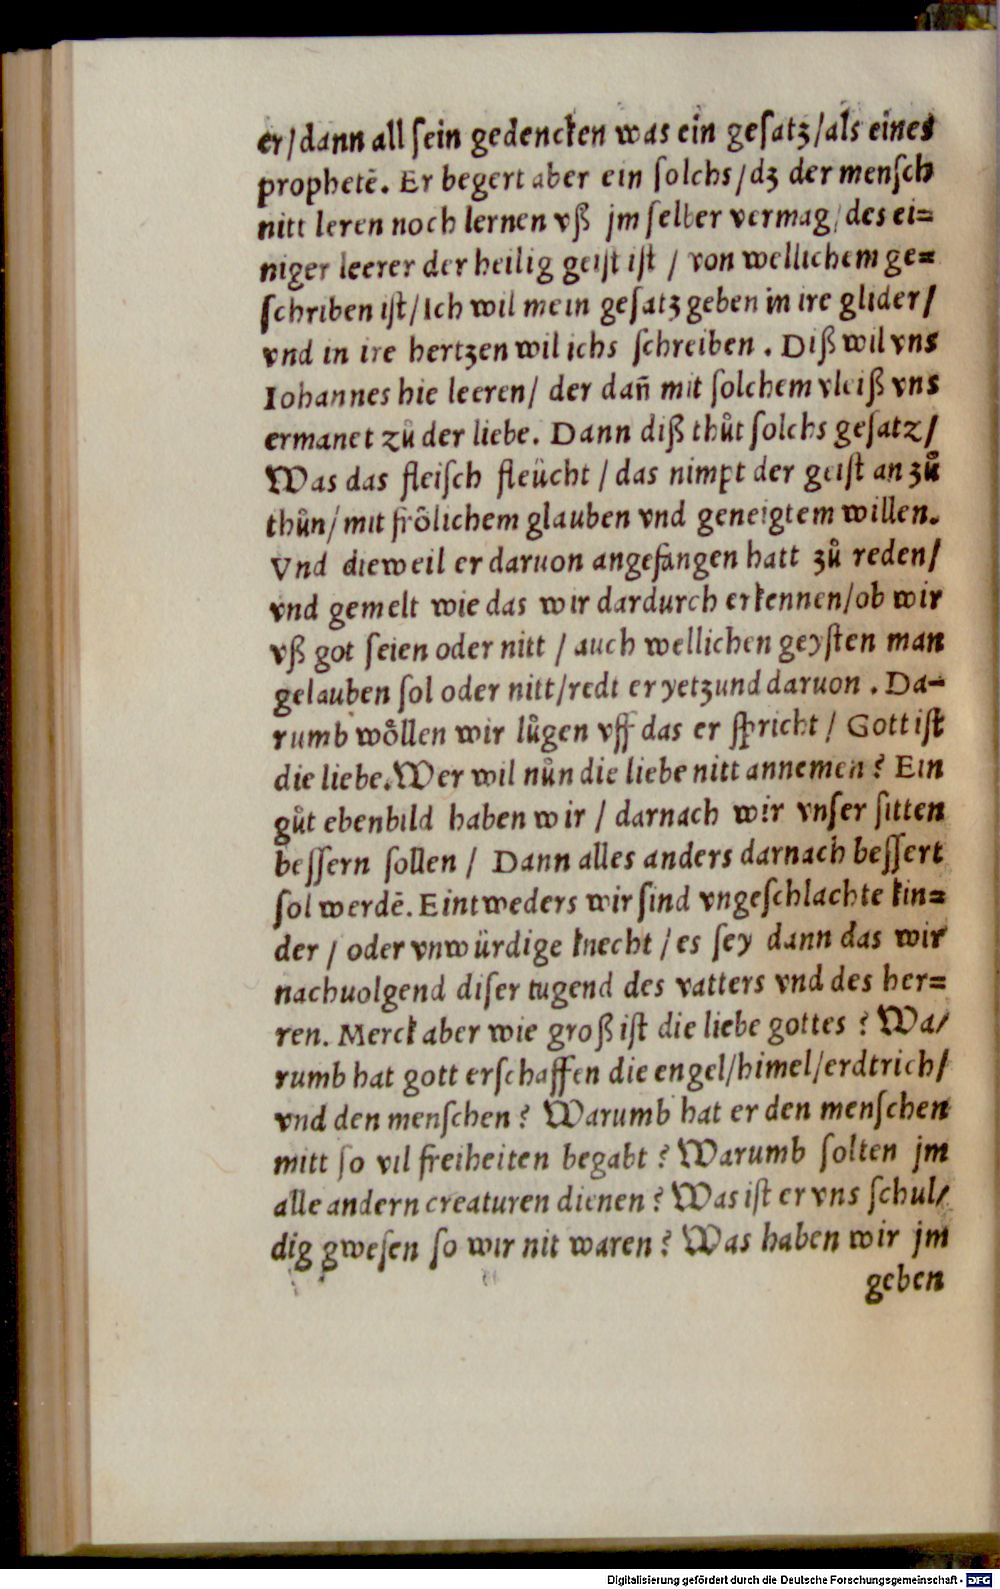 er/dann all ſein gedencken was ein geſatz/als eines
prophetē. Er begert aber ein ſolchs/dz der menſch
nitt leren noch lernen vß jm ſelber vermag/des ei=
niger leerer der heilig geiſt iſt / von wellichem ge=
ſchriben iſt/Ich wil mein geſatz geben in ire glider/
vnd in ire hertzen wil ichs ſchreiben . Diß wil vns
Iohannes hie leeren/ der dañ mit ſolchem vleiß vns
ermanet zů der liebe. Dann diß thůt ſolchs geſatz/
Was das fleiſch fleücht / das nimpt der geiſt an zů
thůn/mit frölichem glauben vnd geneigtem willen.
Vnd dieweil er daruon angefangen hatt zů reden/
vnd gemelt wie das wir dardurch erkennen/ob wir
vß got ſeien oder nitt / auch wellichen geyſten man
gelauben ſol oder nitt/redt er yetzund daruon . Da-
rumb wöllen wir lůgen vff das er ſpricht / Gott iſt
die liebe.Wer wil nůn die liebe nitt annemen? Ein
gůt ebenbild haben wir / darnach wir vnſer ſitten
beſſern ſollen / Dann alles anders darnach beſſert
ſol werdē. Eintweders wir ſind vngeſchlachte kin=
der / oder vnwürdige knecht / es ſey dann das wir
nachuolgend diſer tugend des vatters vnd des her=
ren. Merck aber wie groß iſt die liebe gottes ? Wa/
rumb hat gott erſchaffen die engel/himel/erdtrich/
vnd den menſchen ? Warumb hat er den menſchen
mitt ſo vil freiheiten begabt ? Warumb ſolten jm
alle andern creaturen dienen ? Was iſt er vns ſchul/
dig gweſen ſo wir nit waren ? Was haben wir jm
geben
Digitalisierung gefördert durch die Deutsche Forschungsgemeinschaft - DFG